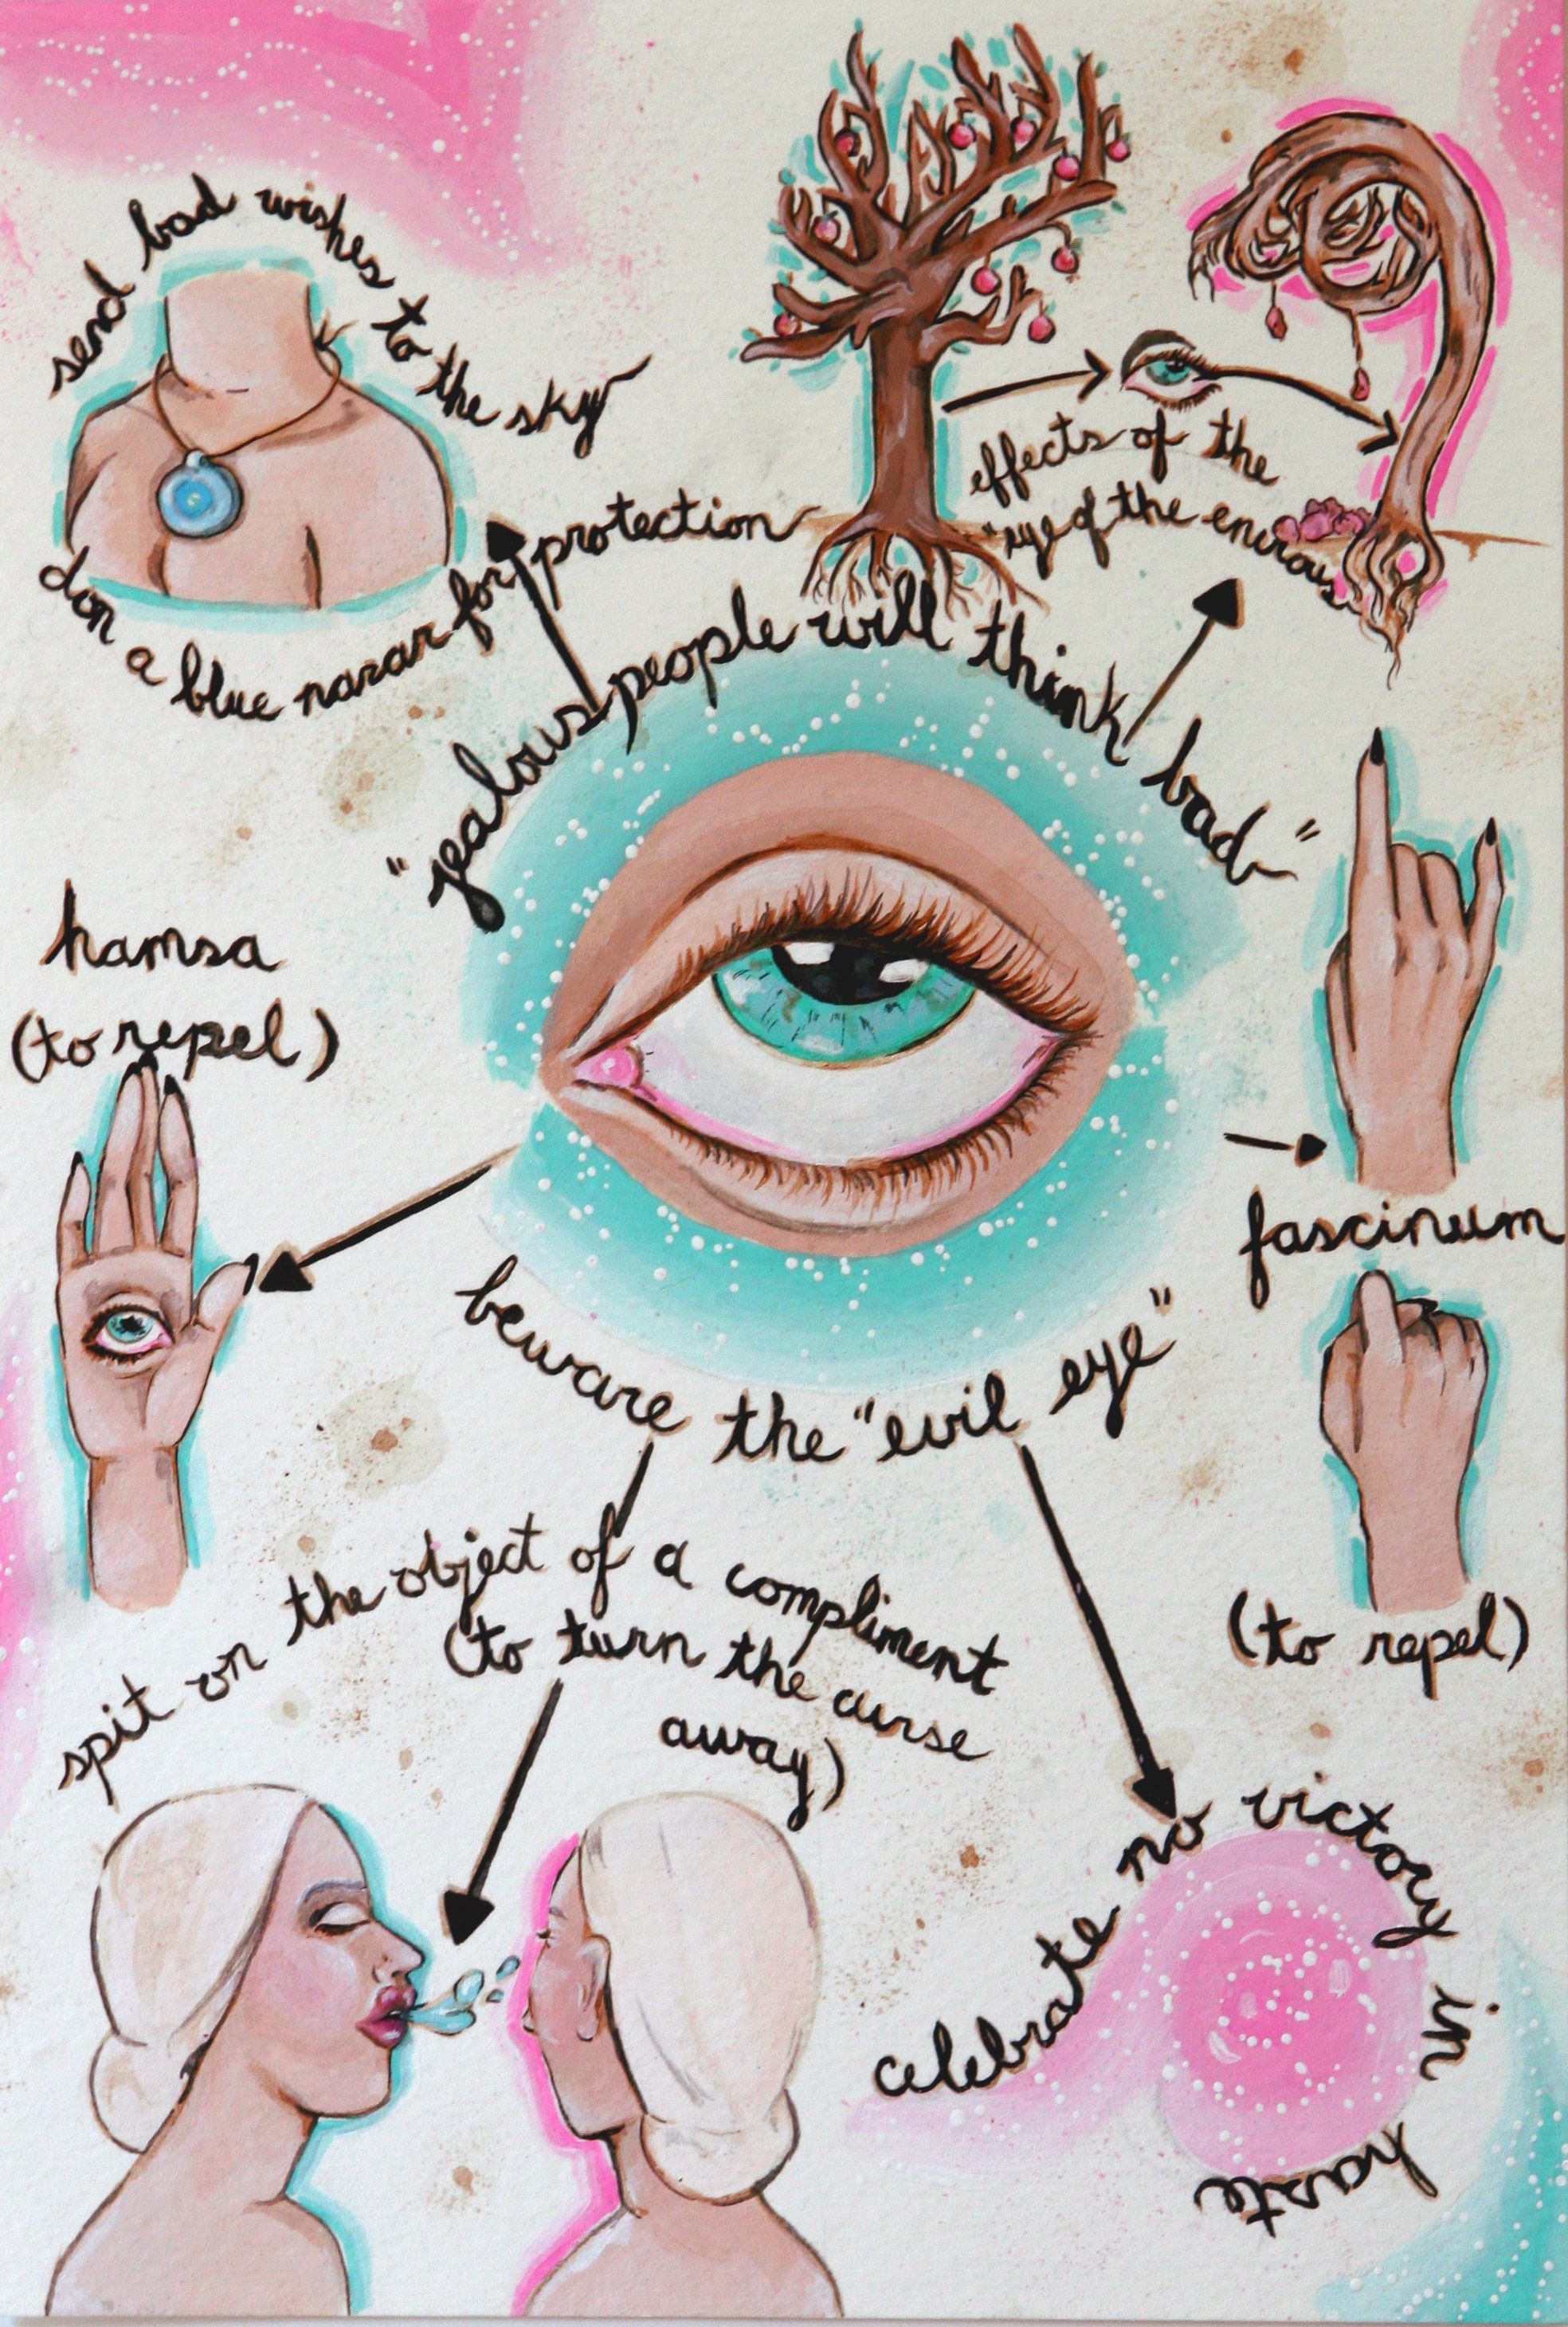 send bad wishes to the sky
don a blue nazar for protection
effects of the
"eye of the envious"
"jealous people will think bad"
hamsa
(to repel)
fascinum
(to repel)
beware the "evil eye"
spit on the object of a compliment
(to turn the curse
away)
celebrate no victory in haste